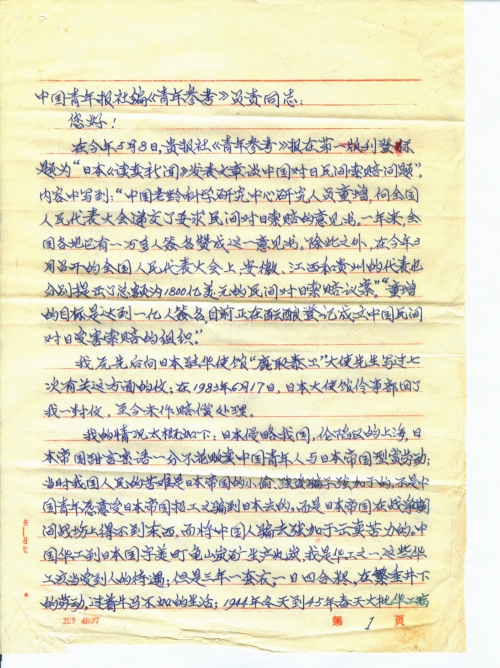 中国青年报社编《青年参考》负责同志：
您好！
在今年5月8日，贵报社《青年参考》报在第一版刊登标
题为“日本《读卖新闻》发表文章谈中国对日民间索赔问题”，
内容中写到：“中国老龄科学研究中心研究人员童增，向全国
人民代表大会递交了要求民间对日索赔的意见书。一年来，全
国各地已有一万多人签名赞成这一意见书。除此之外，在今年3
月召开的全国人民代表大会上，安徽、江西和贵州的代表也
分别提出了总额为1800亿美元的民间对日索赔议案。”“童增
的目标是达到一亿人签名，目前正在酝酿登记成立中国民间
对日受害索赔的组织。”
我先后向日本驻华使馆“鹿取泰卫”大使先生写过七
次有关这方面的信；在1983年6月17日，日本大使馆领事部回了
我一封信，至今未作赔偿处理。
我的情况大概如下：日本侵略我国，沦陷区的上海，日
本帝国甜言蜜语一分不花收卖中国青年人与日本帝国型质劳动；
当时我国人民的苦难是日本帝国的小偷、强加于的，不是中
国青年愿意受日本帝国招工又骗到日本去的，而是日本帝国在战争期
间战场上得不到东西，而将中国人骗去强加于云卖苦力的。中
国华工到日本国宇美町亀山炭矿生产出炭，我是华工之一，这些华
工应当受到人的待遇；但是三年一套衣，一日四合粮，在繁重井下
的劳动，过着牛马不如的生活；1944年冬天到45年春天大批华工病
第 1 页